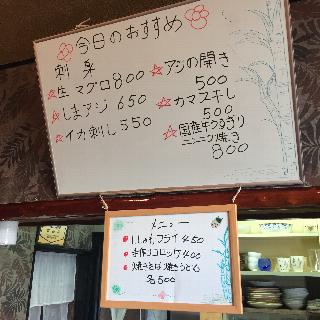 今日のおすすめ
刺身
☆生マグロ800
☆しまアジ 650
☆イカ刺し550
☆アジの開き
500
☆カマス干し
500
☆国産牛
ニンニク焼き
800
メニュー
フライ450
手作りコロッケ400
焼きそば・焼うどん
各500